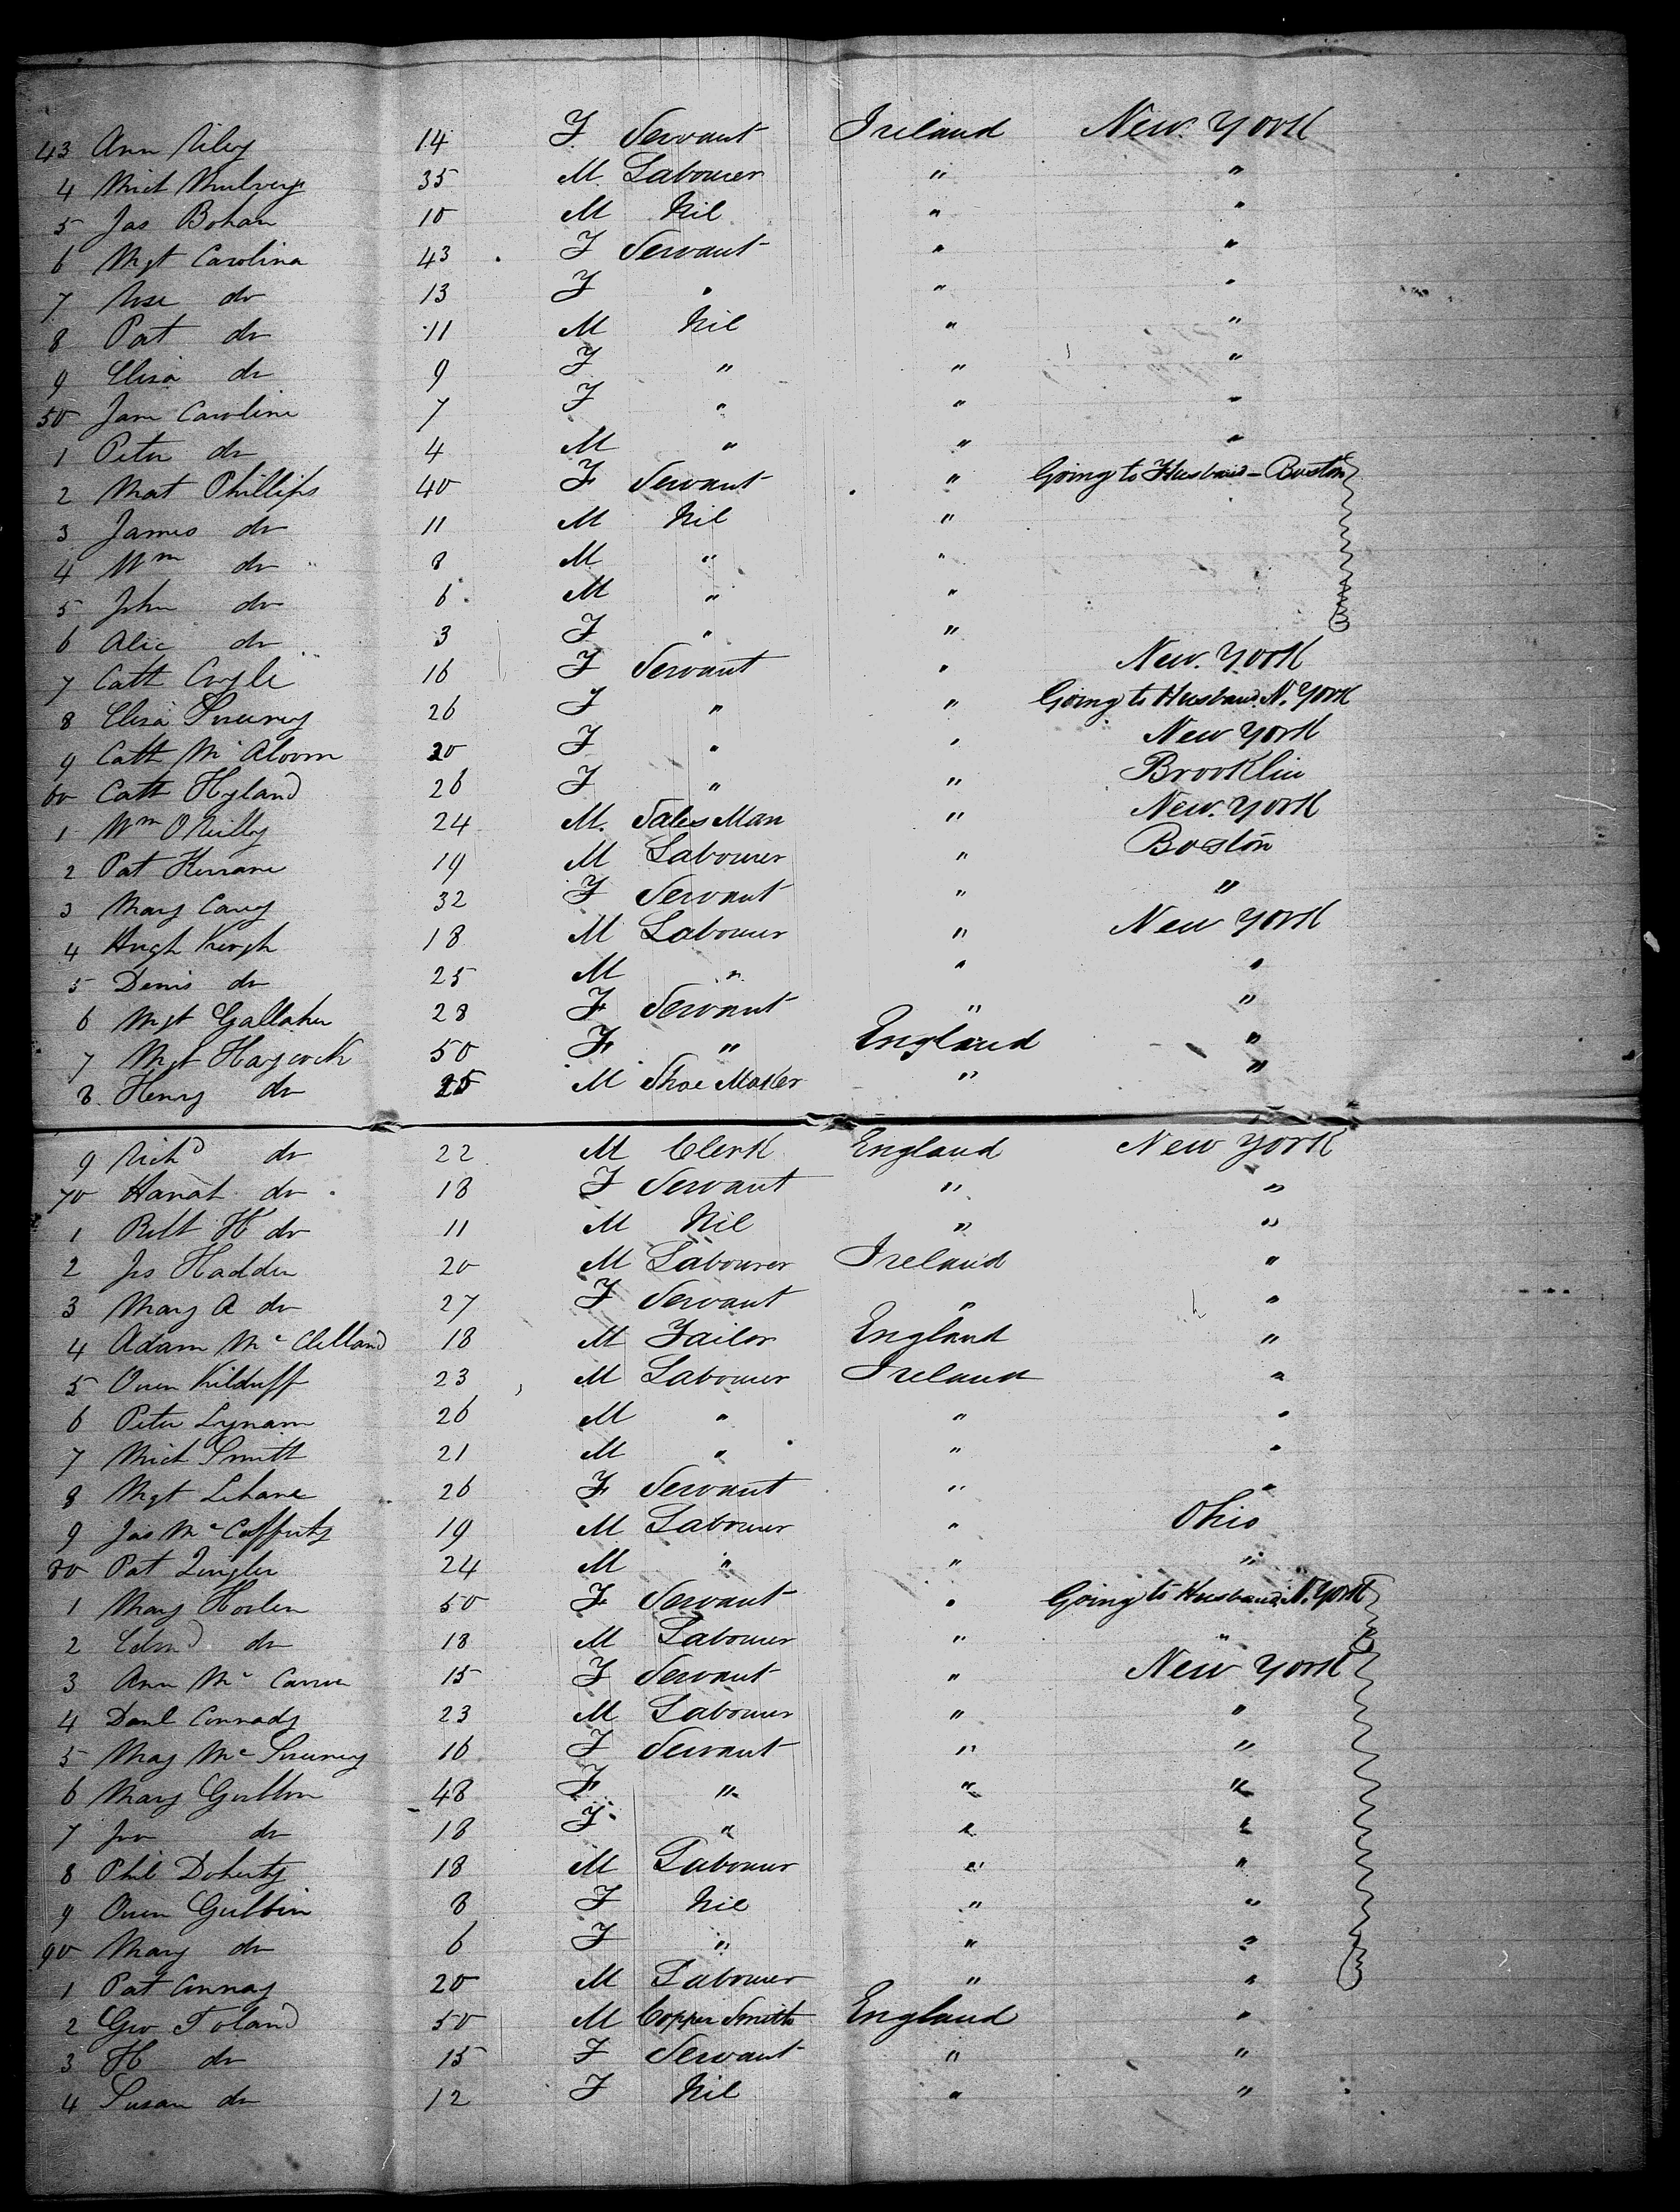 43 Ann Riley 14 F Servant Ireland New York
4 Mich Mulvey 35 M Labourer " "
5 Jas Bohan 10 M Nil " "
6 Mgt Carolina 43 F Servant " "
7 Rose do 13 F " " "
8 Pat do 11 M Nil " "
9 Eliza do 9 F " " "
50 Jane Caroline 7 F " " "
1 Peter do 4 M " " "
2 Mat Phillips 40 F Servant " Going to Husband - Boston
3 James do 11 M Nil "
4 Wm do 8 M " "
5 John do 6 M " "
6 Alic do 3 F " "
7 Cath Coyle 16 F Servant " New York
8 Eliza Sweeney 26 F " " Going to Husband N. York
9 Cath 20 F " " New York
60 Cath Hyland 26 F " " Brooklin
1 Wm O Reilly 24 M Sales Man " New York
2 Pat Kerrane 19 M Labourer " Boston
3 Mary Carey 32 F Servant " "
4 Hugh Keogh 18 M Labourer " New York
5 Denis do 25 M " " "
6 Mgt Gallaher 28 F Servant " "
7 Mgt Haycock 50 F " England "
8 Henry do 25 M Shoe Maker " "
9 Richd do 22 M Clerk England New York
70 Hanah do 18 F Servant " "
1 Robt H do 11 M Nil " "
2 Jas Hadden 20 M Labourer Ireland "
3 Mary A do 27 F Servant " "
4 Adam Mc Clelland 18 M Tailor England "
5 Owen Kilduff 23 M Labourer Ireland "
6 Peter Lynam 26 M " " "
7 Mich Smith 21 M " " "
8 Mgt Lehane 26 F Servant " "
9 Jas Mc Cafferty 19 M Labourer " Ohio
80 Pat 24 M " " "
1 Mary 50 F Servant " Going to Husband N. York
2 Edmd do 18 M Labourer " "
3 Ann Mc 15 F Servant " New York
4 Danl Connady 23 M Labourer " "
5 May Mc Sweeney 16 F Servant " "
6 Mary Gubbon 48 F " " "
7 do 18 F " " "
8 Phil Doherty 18 M Labourer " "
9 Owen Gubbin 8 F Nil " "
90 Mary do 6 F " " "
1 Pat 20 M Labourer " "
2 Geo Toland 50 M Copper Smith England "
3 H do 15 F Servant " "
4 Susan do 12 F Nil " "